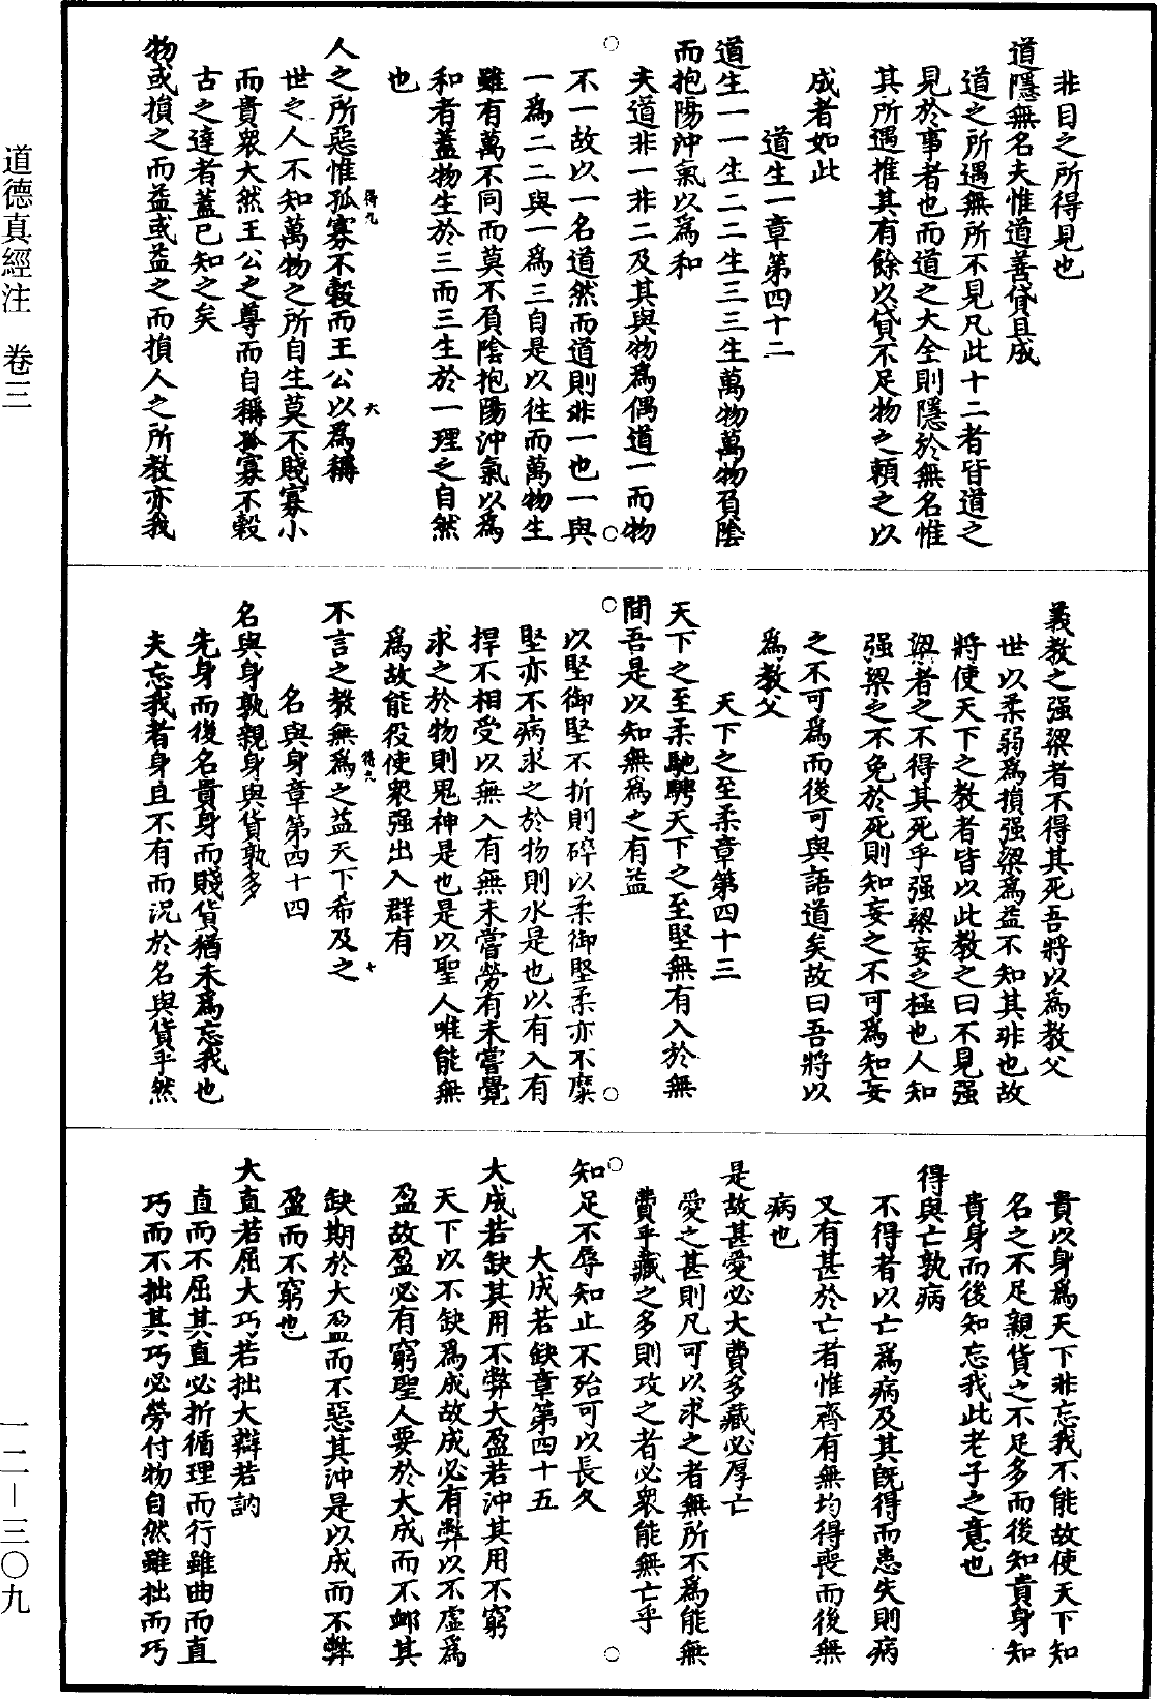 非目之所得見也
道隱無名夫惟道善貸且成
道之所遇無所不見凡此十二者皆道之
見於事者也而道之大全則隱於無名惟
其所遇推其有餘以貸不足物之賴之以
成者如此
道生一章第四十二
道生一一生二二生三三生萬物萬物負陰
而抱陽沖氣以為和
夫道非一非二及其與物為偶道一而物
不一故以一名道然而道則非一也一與
一為二二與一為三自是以往而萬物生
雖有萬不同而莫不負陰抱陽沖氣以為
和者蓋物生於三而三生於一理之自然
也
人之所惡惟孤寡不穀而王公以為稱
世之人不知萬物之所自生莫不賤寡小
而貴衆大然王公之尊而自稱孤寡不穀
古之達者蓋已知之矣
物或損之而益或益之而損人之所教亦我
得九
六
義教之强梁者不得其死吾將以為教父
世以柔弱為損强梁為益不知其非也故
將使天下之教者皆以此教之曰不見强
梁者之不得其死乎强梁妄之極也人知
强梁之不免於死則知妄之不可為知妄
之不可為而後可與語道矣故曰吾將以
為教父
天下之至柔章第四十三
天下之至柔馳騁天下之至堅無有入於無
間吾是以知無為之有益
以堅御堅不折則碎以柔御堅柔亦不糜
堅亦不病求之於物則水是也以有入有
捍不相受以無入有無未嘗勞有未嘗覺
求之於物則鬼神是也是以聖人唯能無
為故能役使衆强出入群有
不言之教無為之益天下希及之
得六
七
名與身章第四十四
名與身孰親身與貨孰多
先身而後名貴身而賤貨猶未為忘我也
夫忘我者身且不有而況於名與貨乎然
貴以身為天下非忘我不能故使天下知
名之不足親貨之不足多而後知貴身知
貴身而後知忘我此老子之意也
得與亡孰病
不得者以亡為病及其既得而患失則病
又有甚於亡者惟齊有無均得喪而後無
病也
是故甚愛必大費多藏必厚亡
愛之甚則凡可以求之者無所不為能無
費乎藏之多則攻之者必衆能無亡乎
知足不辱知止不殆可以長久
大成若缺章第四十五
大成若缺其用不弊大盈若沖其用不窮
天下以不缺為成故成必有弊以不虛為
盈故盈必有窮聖人要於大成而不卹其
缺期於大盈而不惡其沖是以成而不弊
盈而不窮也
大直若屈大巧若拙大辯若訥
直而不屈其直必折循理而行雖曲而直
巧而不拙其巧必勞付物自然雖拙而巧
道德真經注　卷三
一二－三〇九